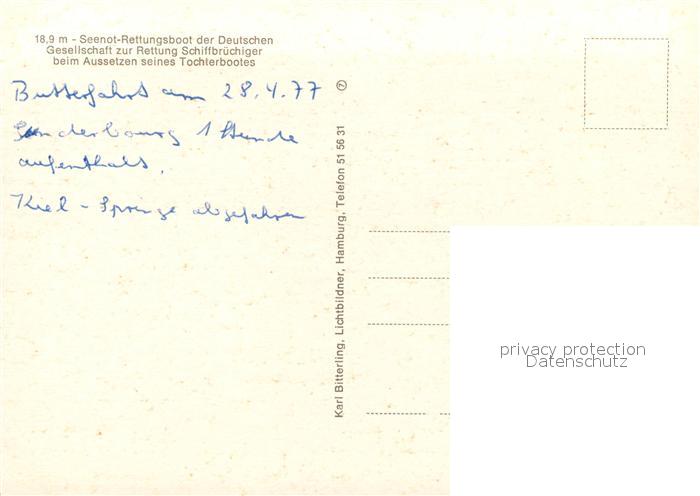 18,9 m - Seenot-Rettungsboot der Deutschen
Gesellschaft zur Rettung Schiffbrüchiger
beim Aussetzen seines Tochterbootes
Butterfahrt am 28.4.77
Sonderbourg 1 Stunde
aufenthalt.
Kiel - Sprenge abgefahren
Karl Bitterling, Lichtbildner, Hamburg, Telefon 51 56 31
privacy protection
Datenschutz